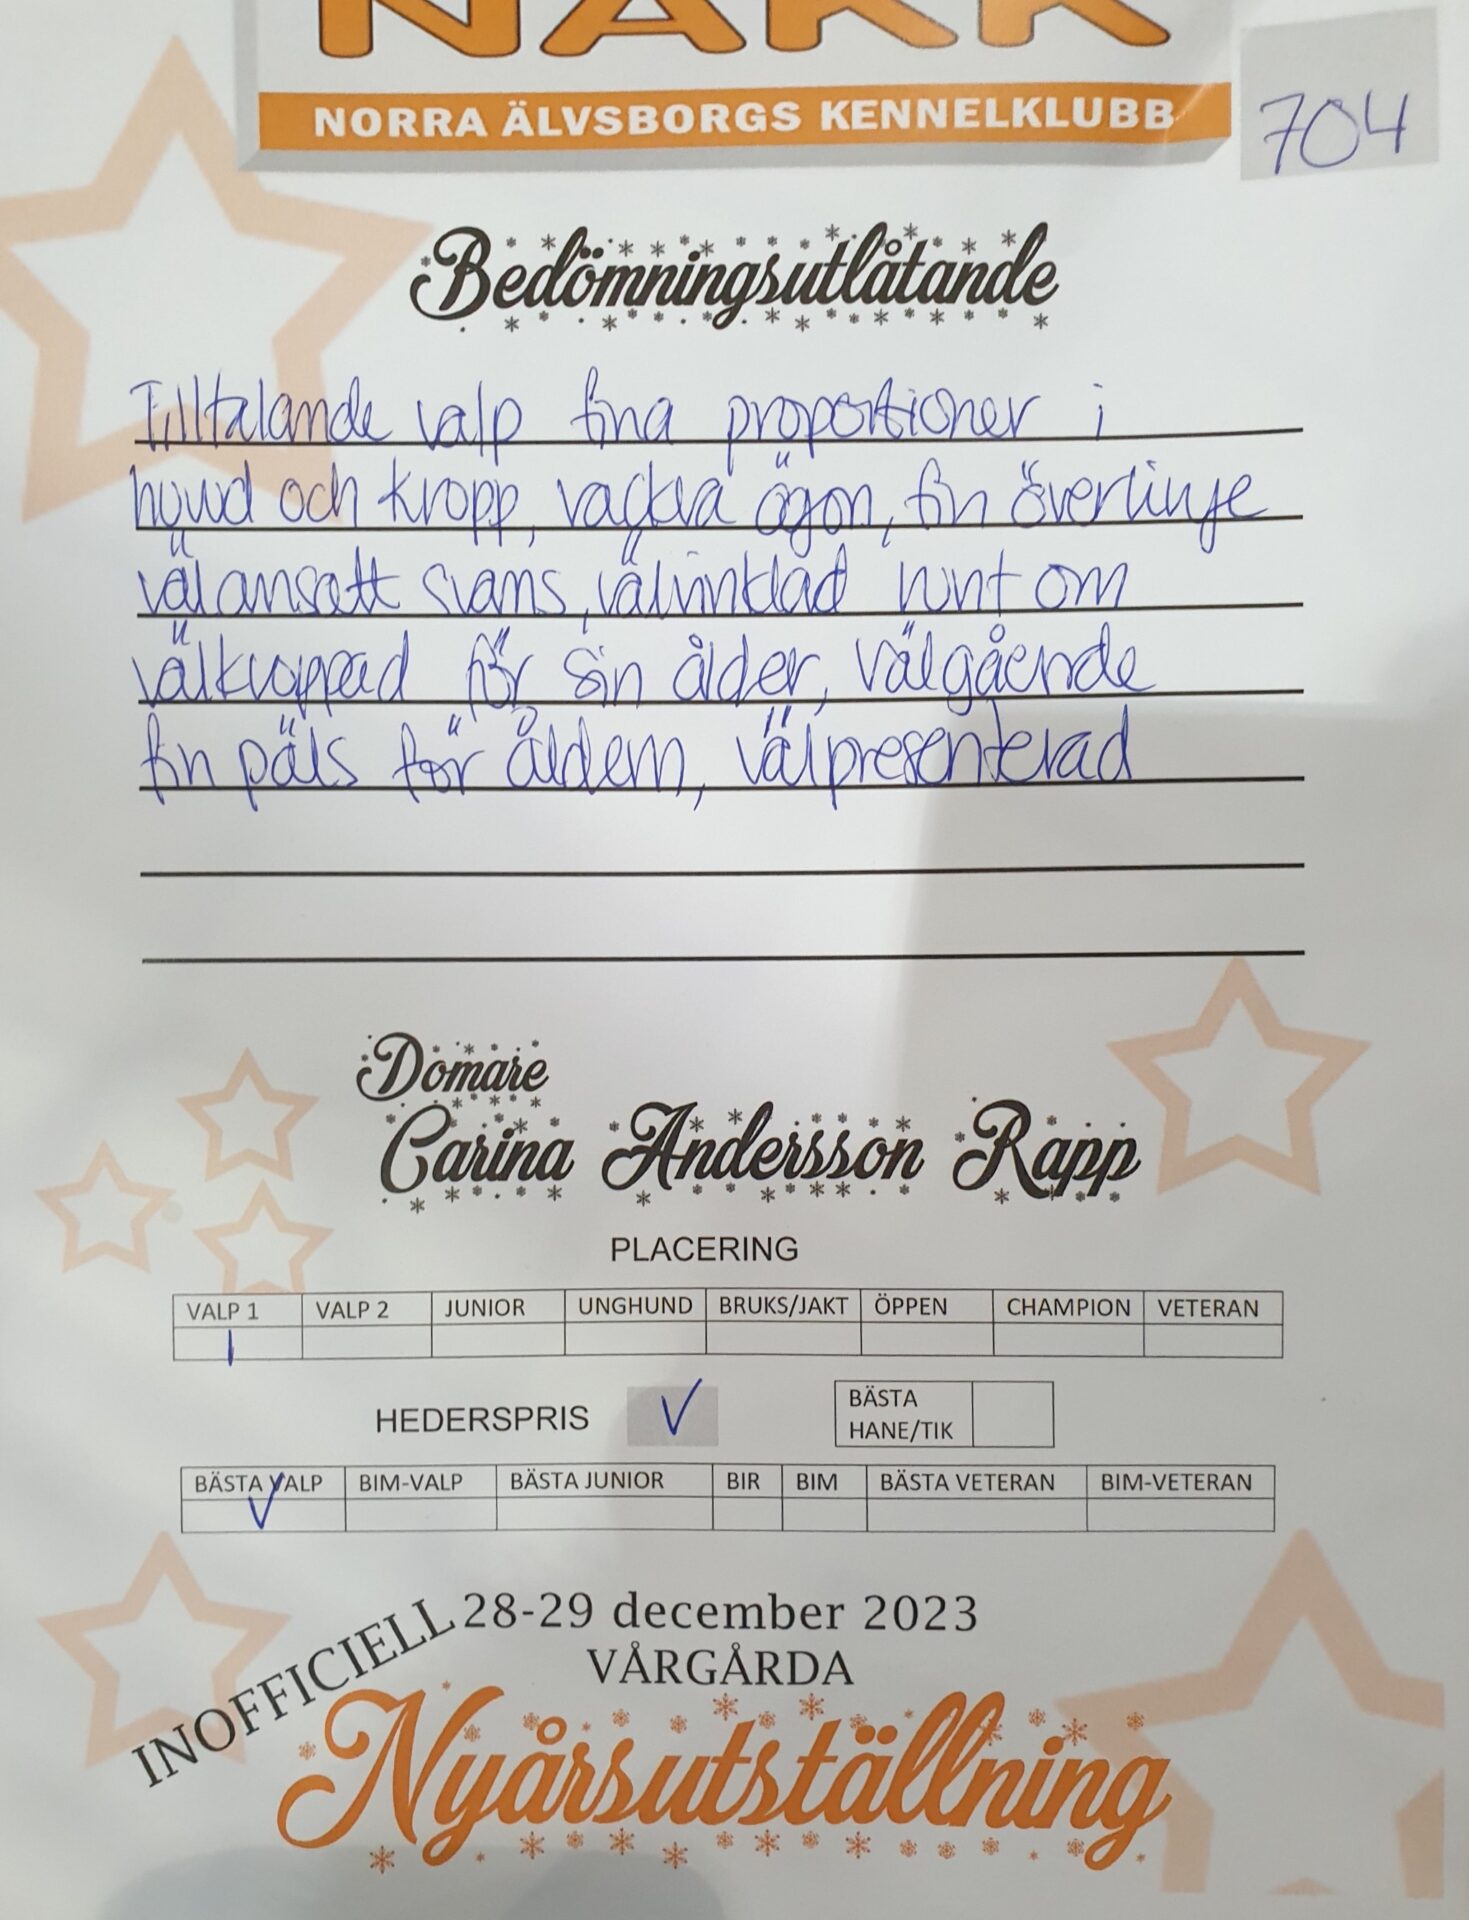 NÄKK
NORRA ÄLVSBORGS KENNELKLUBB
704
Bedömningsutlåtande
Tilltalande valp fina proportioner i
huvud och kropp, vackra ögon, fin överlinje
välansatt svans, välvinklad runt om
välkroppad för sin ålder, välgående
fin päls för åldern, välpresenterad
Domare
Carina Andersson Rapp
PLACERING
VALP 1 VALP 2 JUNIOR UNGHUND BRUKS/JAKT ÖPPEN CHAMPION VETERAN
1
HEDERSPRIS ✓ BÄSTA
HANE/TIK
BÄSTA VALP BIM-VALP BÄSTA JUNIOR BIR BIM BÄSTA VETERAN BIM-VETERAN
✓
INOFFICIELL 28-29 december 2023
VÅRGÅRDA
Nyårsutställning